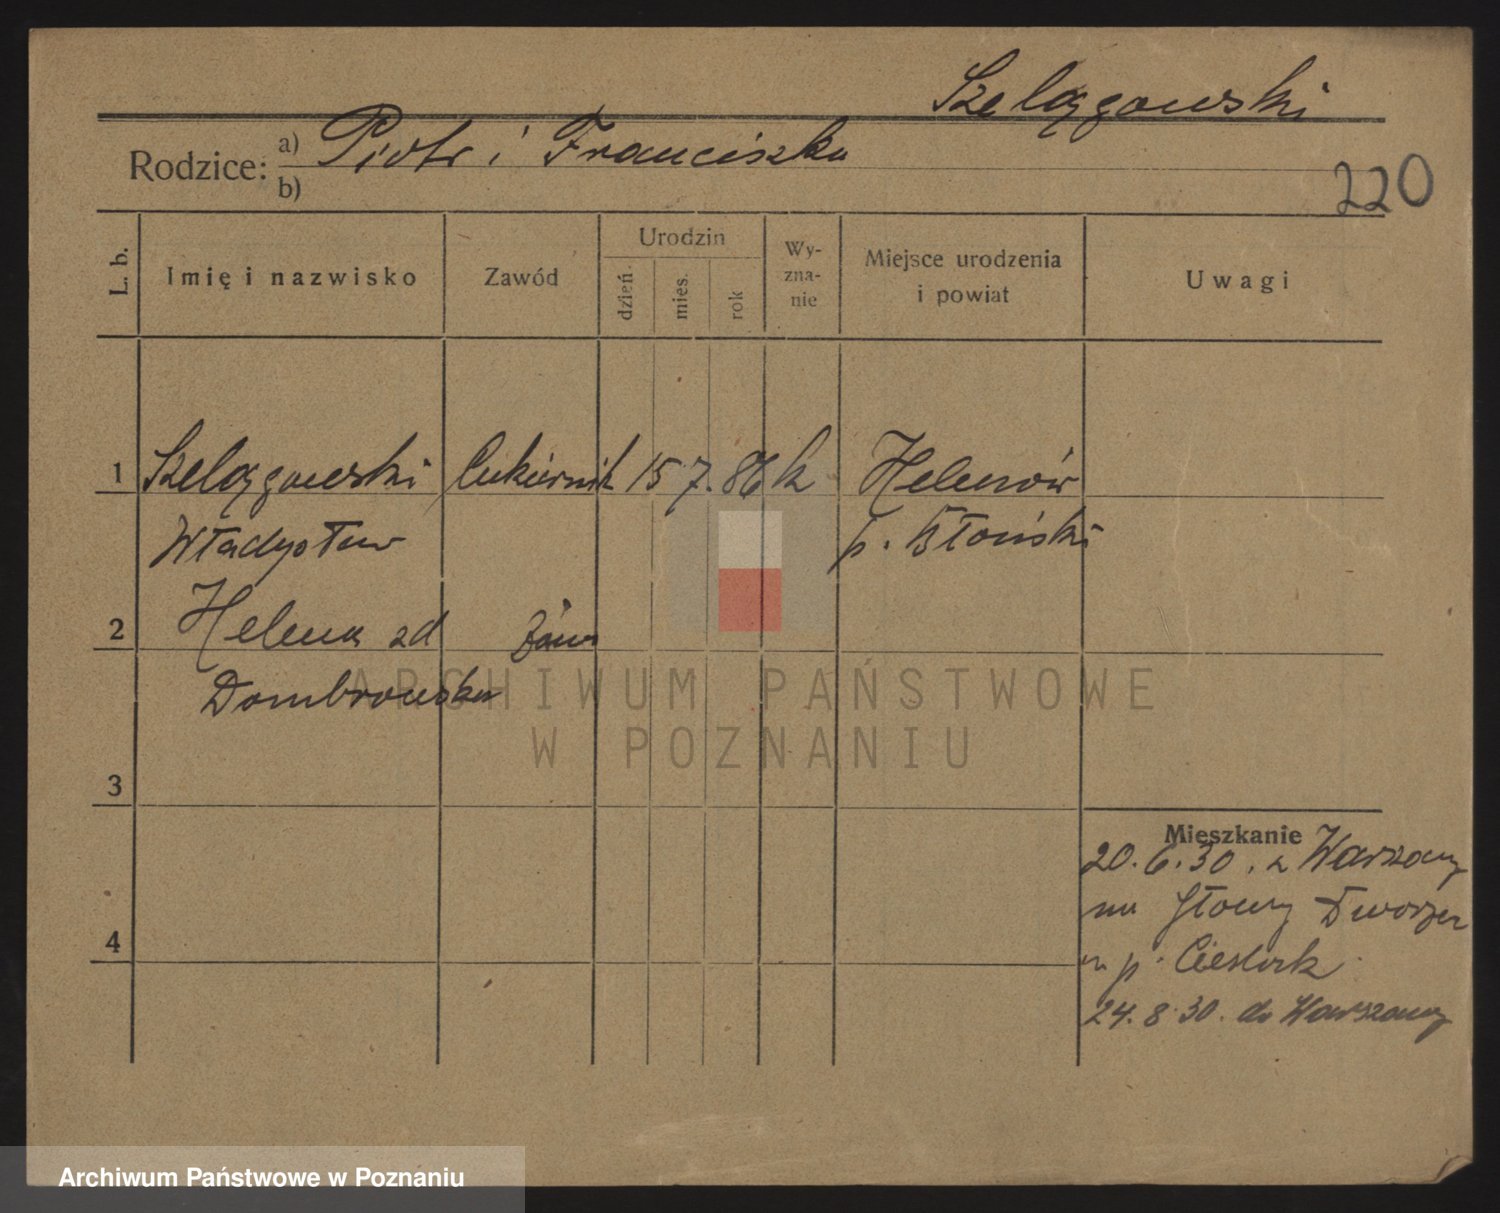 Szelągowski
Rodzice: a) Piotr i Franciszka
b)
220
L. b.
Imię i nazwisko
Zawód
Urodzin
dzień.
mies.
rok
Wy-
zna-
nie
Miejsce urodzenia
i powiat
Uwagi
1 Szelągowski Cukiernik 15 7. 86 k Helenów
Władysław p. Błoński
2 Helena zd żona
Dombrowska
ARCHIWUM PAŃSTWOWE
W POZNANIU
3
4
Mieszkanie
20.6.30. z Warszawy
na Dworzec
p.
24.8.30. do Warszawy
Archiwum Państwowe w Poznaniu